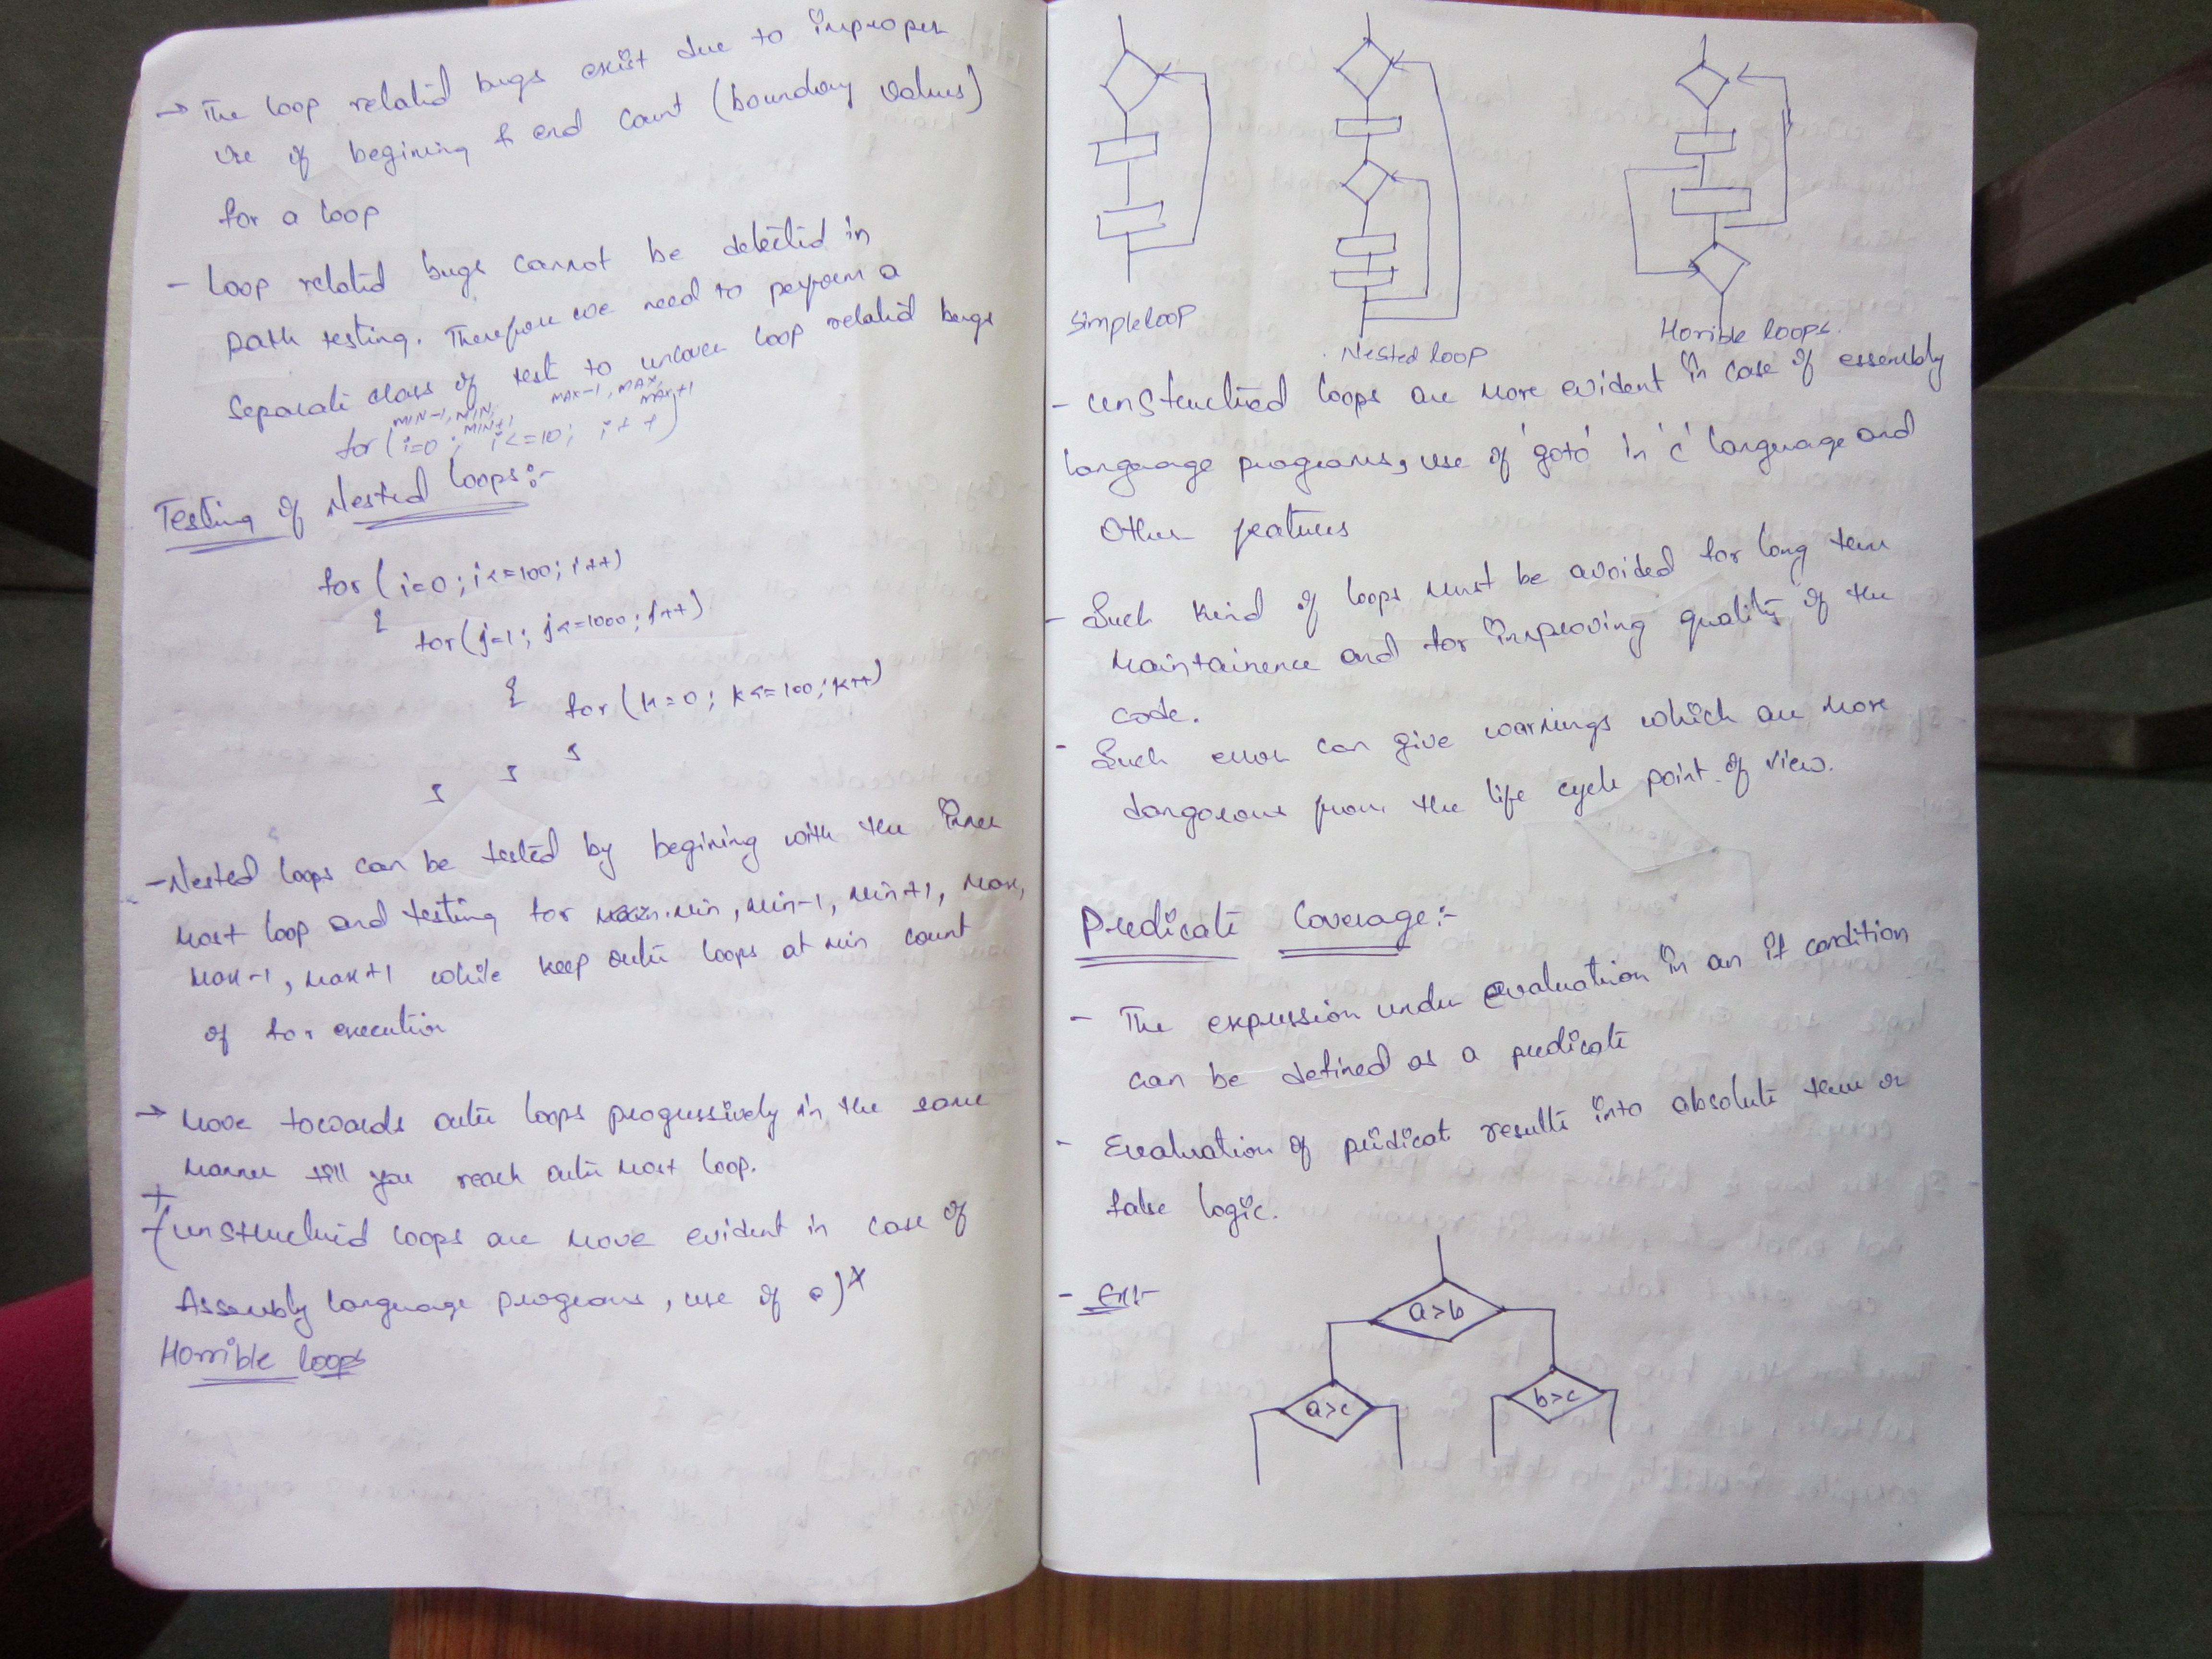 → The loop related bugs exist due to improper
use of begining & end count (boundary values)
for a loop
- Loop related bugs cannot be detected in
path testing. Therefore we need to perform a
separate class of test to uncover loop related bugs
MIN-1, MIN, MIN+1 MAX-1, MAX, MAX+1
for (i=0; i<=10; i++)
Testing of Nested loops:-
for (i=0; i<=100; i++)
{
for (j=1; j<=1000; j++)
{ for (k=0; k<=100; k++)
}
}
}
- Nested loops can be tested by begining with the inner
most loop and testing for min, min-1, min+1, max,
max-1, max+1 while keep outer loops at min count
of for execution
→ Move towards outer loops progressively in the same
manner till you reach outer most loop.
(unstructured loops are more evident in case of
Assembly language programs, use of a)
Horrible loops
simple loop
Nested loop
Horrible loops.
- unstructured loops are more evident in case of assembly
language programs, use of 'goto' in 'c' language and
other features
- Such kind of loops must be avoided for long term
maintainence and for improving quality of the
code.
- Such error can give warnings which are more
dangerous from the life cycle point of view.
Predicate Coverage:-
- The expression under evaluation in an if condition
can be defined as a predicate
- Evaluation of predicat results into absolute true or
false logic.
- Ex:-
a>b
a>c
b>c